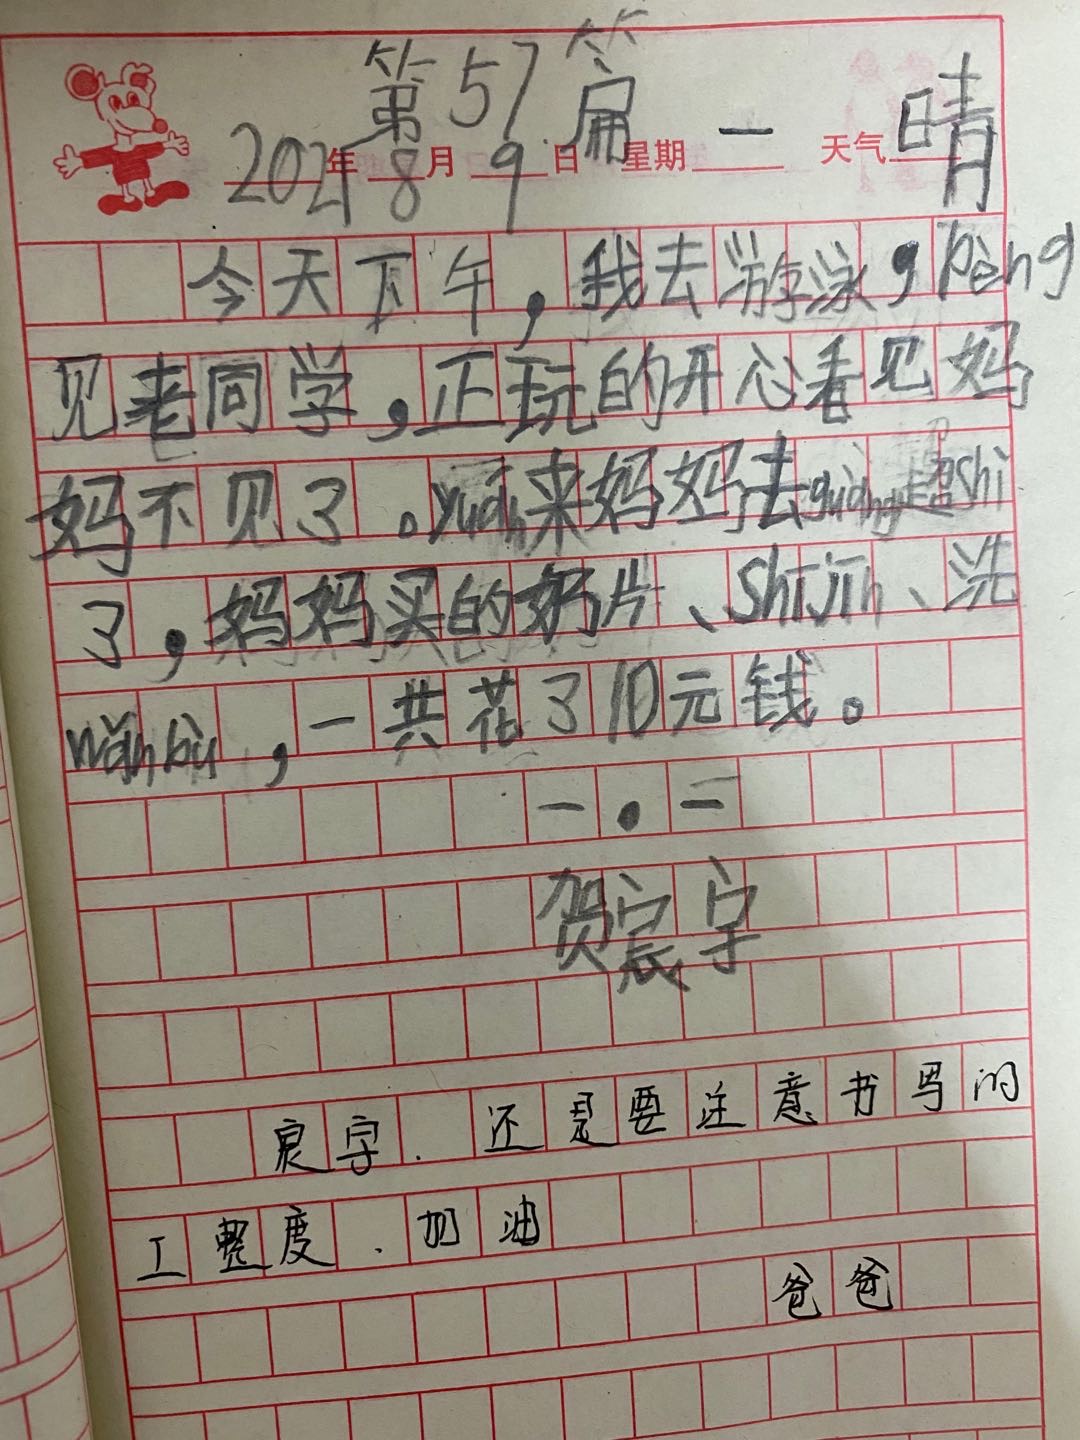 第57篇
2021年8月9日 星期一 天气晴
今天下午，我去游泳，pèng
见老同学，正玩的开心看见妈
妈不见了。yuán来妈妈去guàng超shì
了，妈妈买的奶片、shī jīn、洗
wǎn bù，一共花了10元钱。
一.二
贺宸宇
宸宇.还是要注意书写的
工整度.加油
爸爸